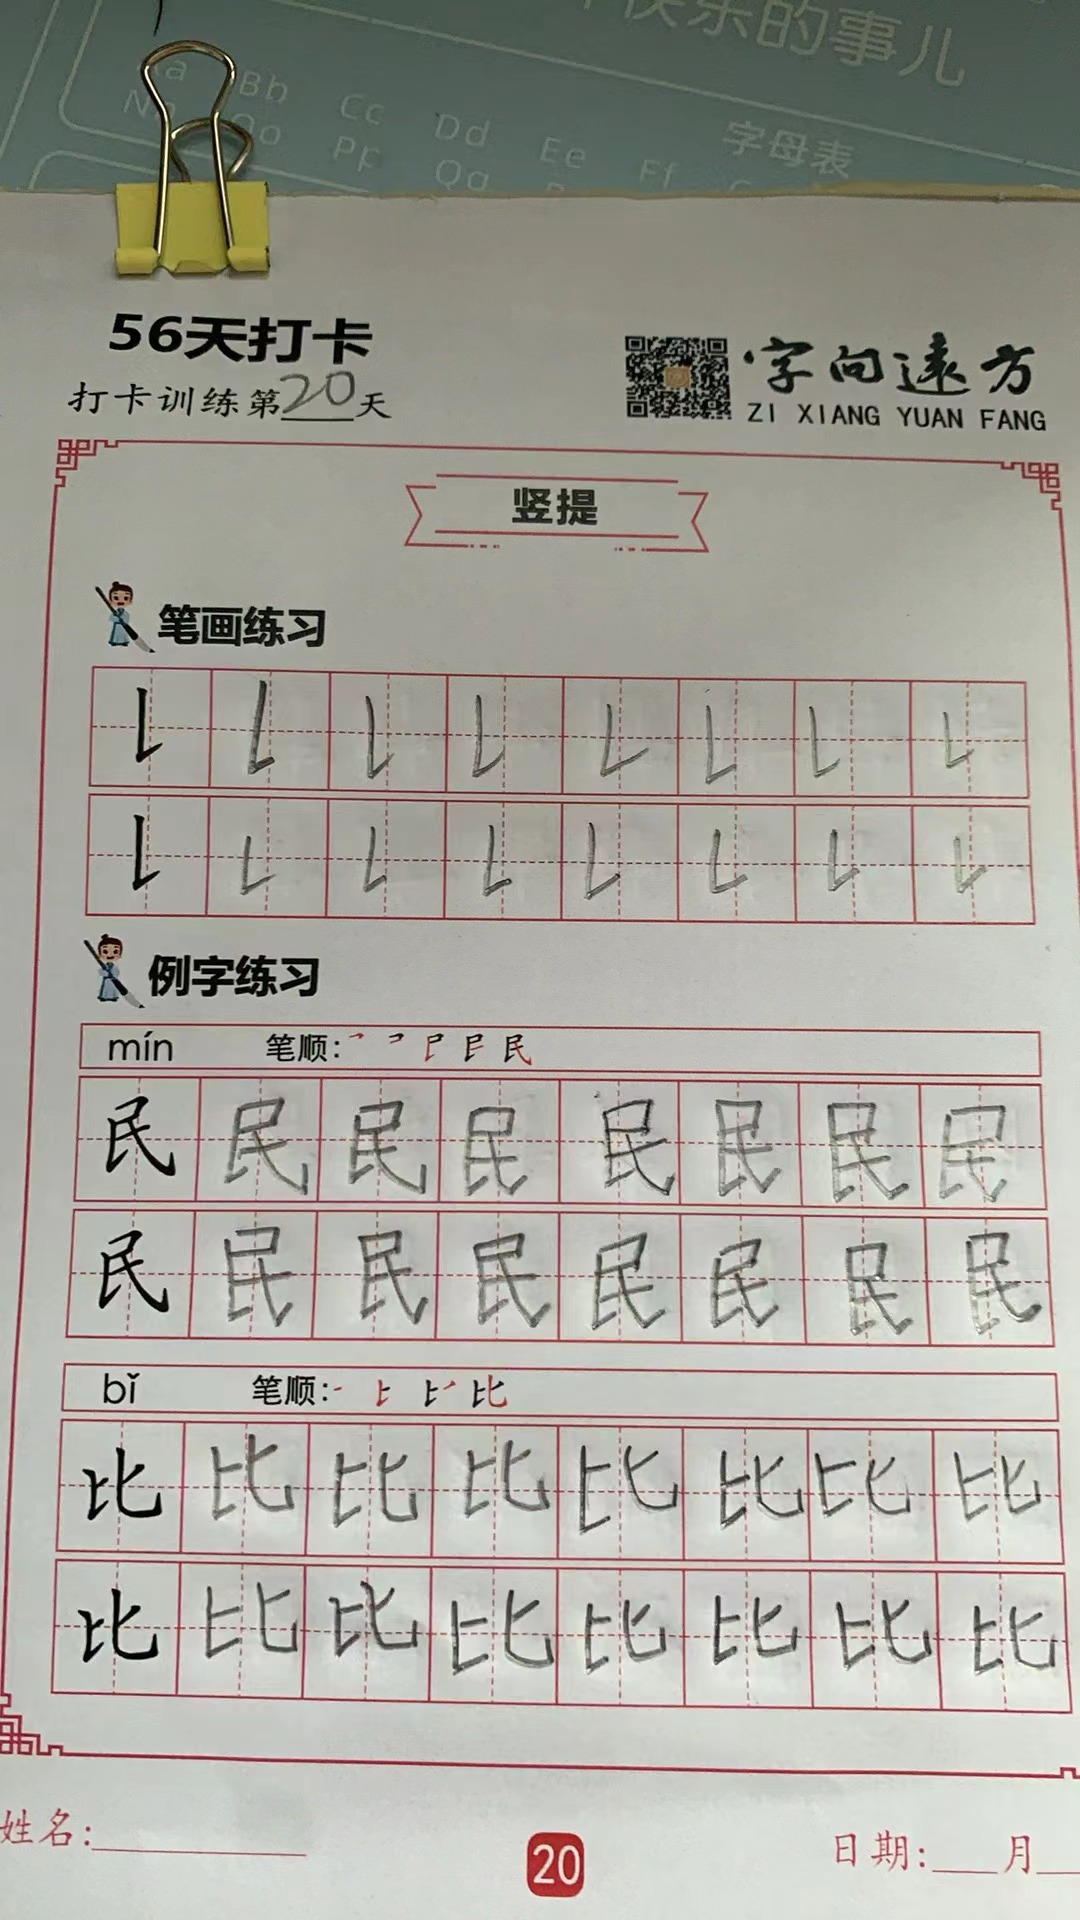 快乐的事儿
Aa Bb Cc Dd Ee Ff
字母表
Nn Oo Pp Qq
56天打卡
打卡训练第20天
字向远方
ZI XIANG YUAN FANG
竖提
笔画练习
㇙ ㇙ ㇙ ㇙ ㇙ ㇙ ㇙ ㇙
㇙ ㇙ ㇙ ㇙ ㇙ ㇙ ㇙ ㇙
例字练习
mín 笔顺:
民 民 民 民 民 民 民 民
民 民 民 民 民 民 民 民
bǐ 笔顺:
比 比 比 比 比 比 比 比
比 比 比 比 比 比 比 比
姓名:
20
日期: 月